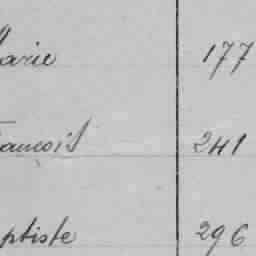 Marie 177
François 241
aptiste 296